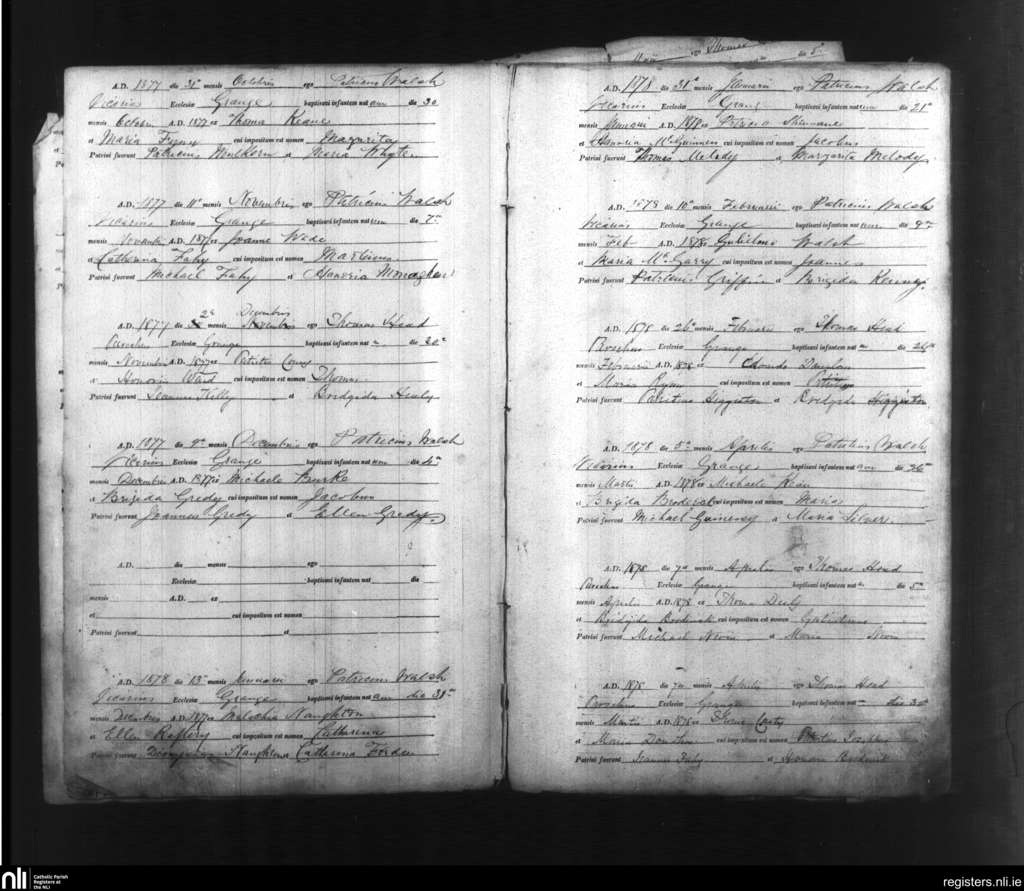 Thomas
die 5
A.D. 1877 die 31° mensis Octobris ego Patricius Walsh
Vicarius Ecclesiæ Grange baptizavi infantem nat am die 30
mensis Octobris A.D. 1877 ex Thoma Keane
et Maria Flynn cui impositum est nomen Margarita
Patrini fuerunt Patricius Mulkern et Maria Whyte
A.D. 1877 die 11° mensis Novembris ego Patricius Walsh
Vicarius Ecclesiæ Grange baptizavi infantem nat um die 7°
mensis A.D. 1877 ex Joanne Wade
et Catherina Fahy cui impositum est nomen Martinus
Patrini fuerunt Michael Fahy et Honoria Monaghan
2° Decembris
A.D. 1877 die mensis Novembris ego Thomas Head
Parochus Ecclesiæ Grange baptizavi infantem nat die 30°
mensis Novembris A.D. 1877 ex
et Honoria Ward cui impositum est nomen Thomas
Patrini fuerunt Joannes Kelly et Bridgida Healy
A.D. 1877 die 9° mensis Decembris ego Patricius Walsh
Vicarius Ecclesiæ Grange baptizavi infantem nat um die 4°
mensis Decembris A.D. 1877 ex Michaele Burke
et Brigida Gredy cui impositum est nomen Jacobus
Patrini fuerunt Joannes Gredy et Ellen Gredy
A.D. die mensis ego
Ecclesiæ baptizavi infantem nat die
mensis A.D. ex
et cui impositum est nomen
Patrini fuerunt et
A.D. 1878 die 13° mensis Januarii ego Patricius Walsh
Vicarius Ecclesiæ Grange baptizavi infantem nat am die 31°
mensis Decembris A.D. 1877 ex Malachia Naughton
et Ellen Raftery cui impositum est nomen Catharina
Patrini fuerunt Naughton et Catherina Forde
A.D. 1878 die 31° mensis Januarii ego Patricius Walsh
Vicarius Ecclesiæ Grange baptizavi infantem nat um die 25°
mensis Januarii A.D. 1878 ex
et Honoria McGuinness cui impositum est nomen Jacobus
Patrini fuerunt Thomas Melody et Margarita Melody
A.D. 1878 die 10° mensis Februarii ego Patricius Walsh
Vicarius Ecclesiæ Grange baptizavi infantem nat um die 9°
mensis Feb A.D. 1878 ex Gulielmo Walsh
et Maria McGarry cui impositum est nomen Joannes
Patrini fuerunt Patricius Griffin et Brigida Kenny
A.D. 1878 die 26° mensis Februarii ego Thomas Head
Parochus Ecclesiæ Grange baptizavi infantem nat die 26
mensis Februarii A.D. 1878 ex
et Maria Ryan cui impositum est nomen
Patrini fuerunt Higgiston et Bridgida Higgiston
A.D. 1878 die 5° mensis Aprilis ego Patricius Walsh
Vicarius Ecclesiæ Grange baptizavi infantem nat am die 26°
mensis Martii A.D. 1878 ex Michaele Kean
et Brigida Broderick cui impositum est nomen Maria
Patrini fuerunt Michael et Maria Silver
A.D. 1878 die 7a mensis Aprilis ego Thomas Head
Parochus Ecclesiæ Grange baptizavi infantem nat die 5a
mensis Aprilis A.D. 1878 ex Thoma Deely
et Bridgida Broderick cui impositum est nomen
Patrini fuerunt Michael Nevin et Maria Nevin
A.D. 1878 die 7a mensis Aprilis ego Thomas Head
Parochus Ecclesiæ Grange baptizavi infantem nat die
mensis Martii A.D. 1878 ex
et Maria cui impositum est nomen
Patrini fuerunt Joannes Fahy et Honoria Broderick
nli Catholic Parish Registers at the NLI
registers.nli.ie